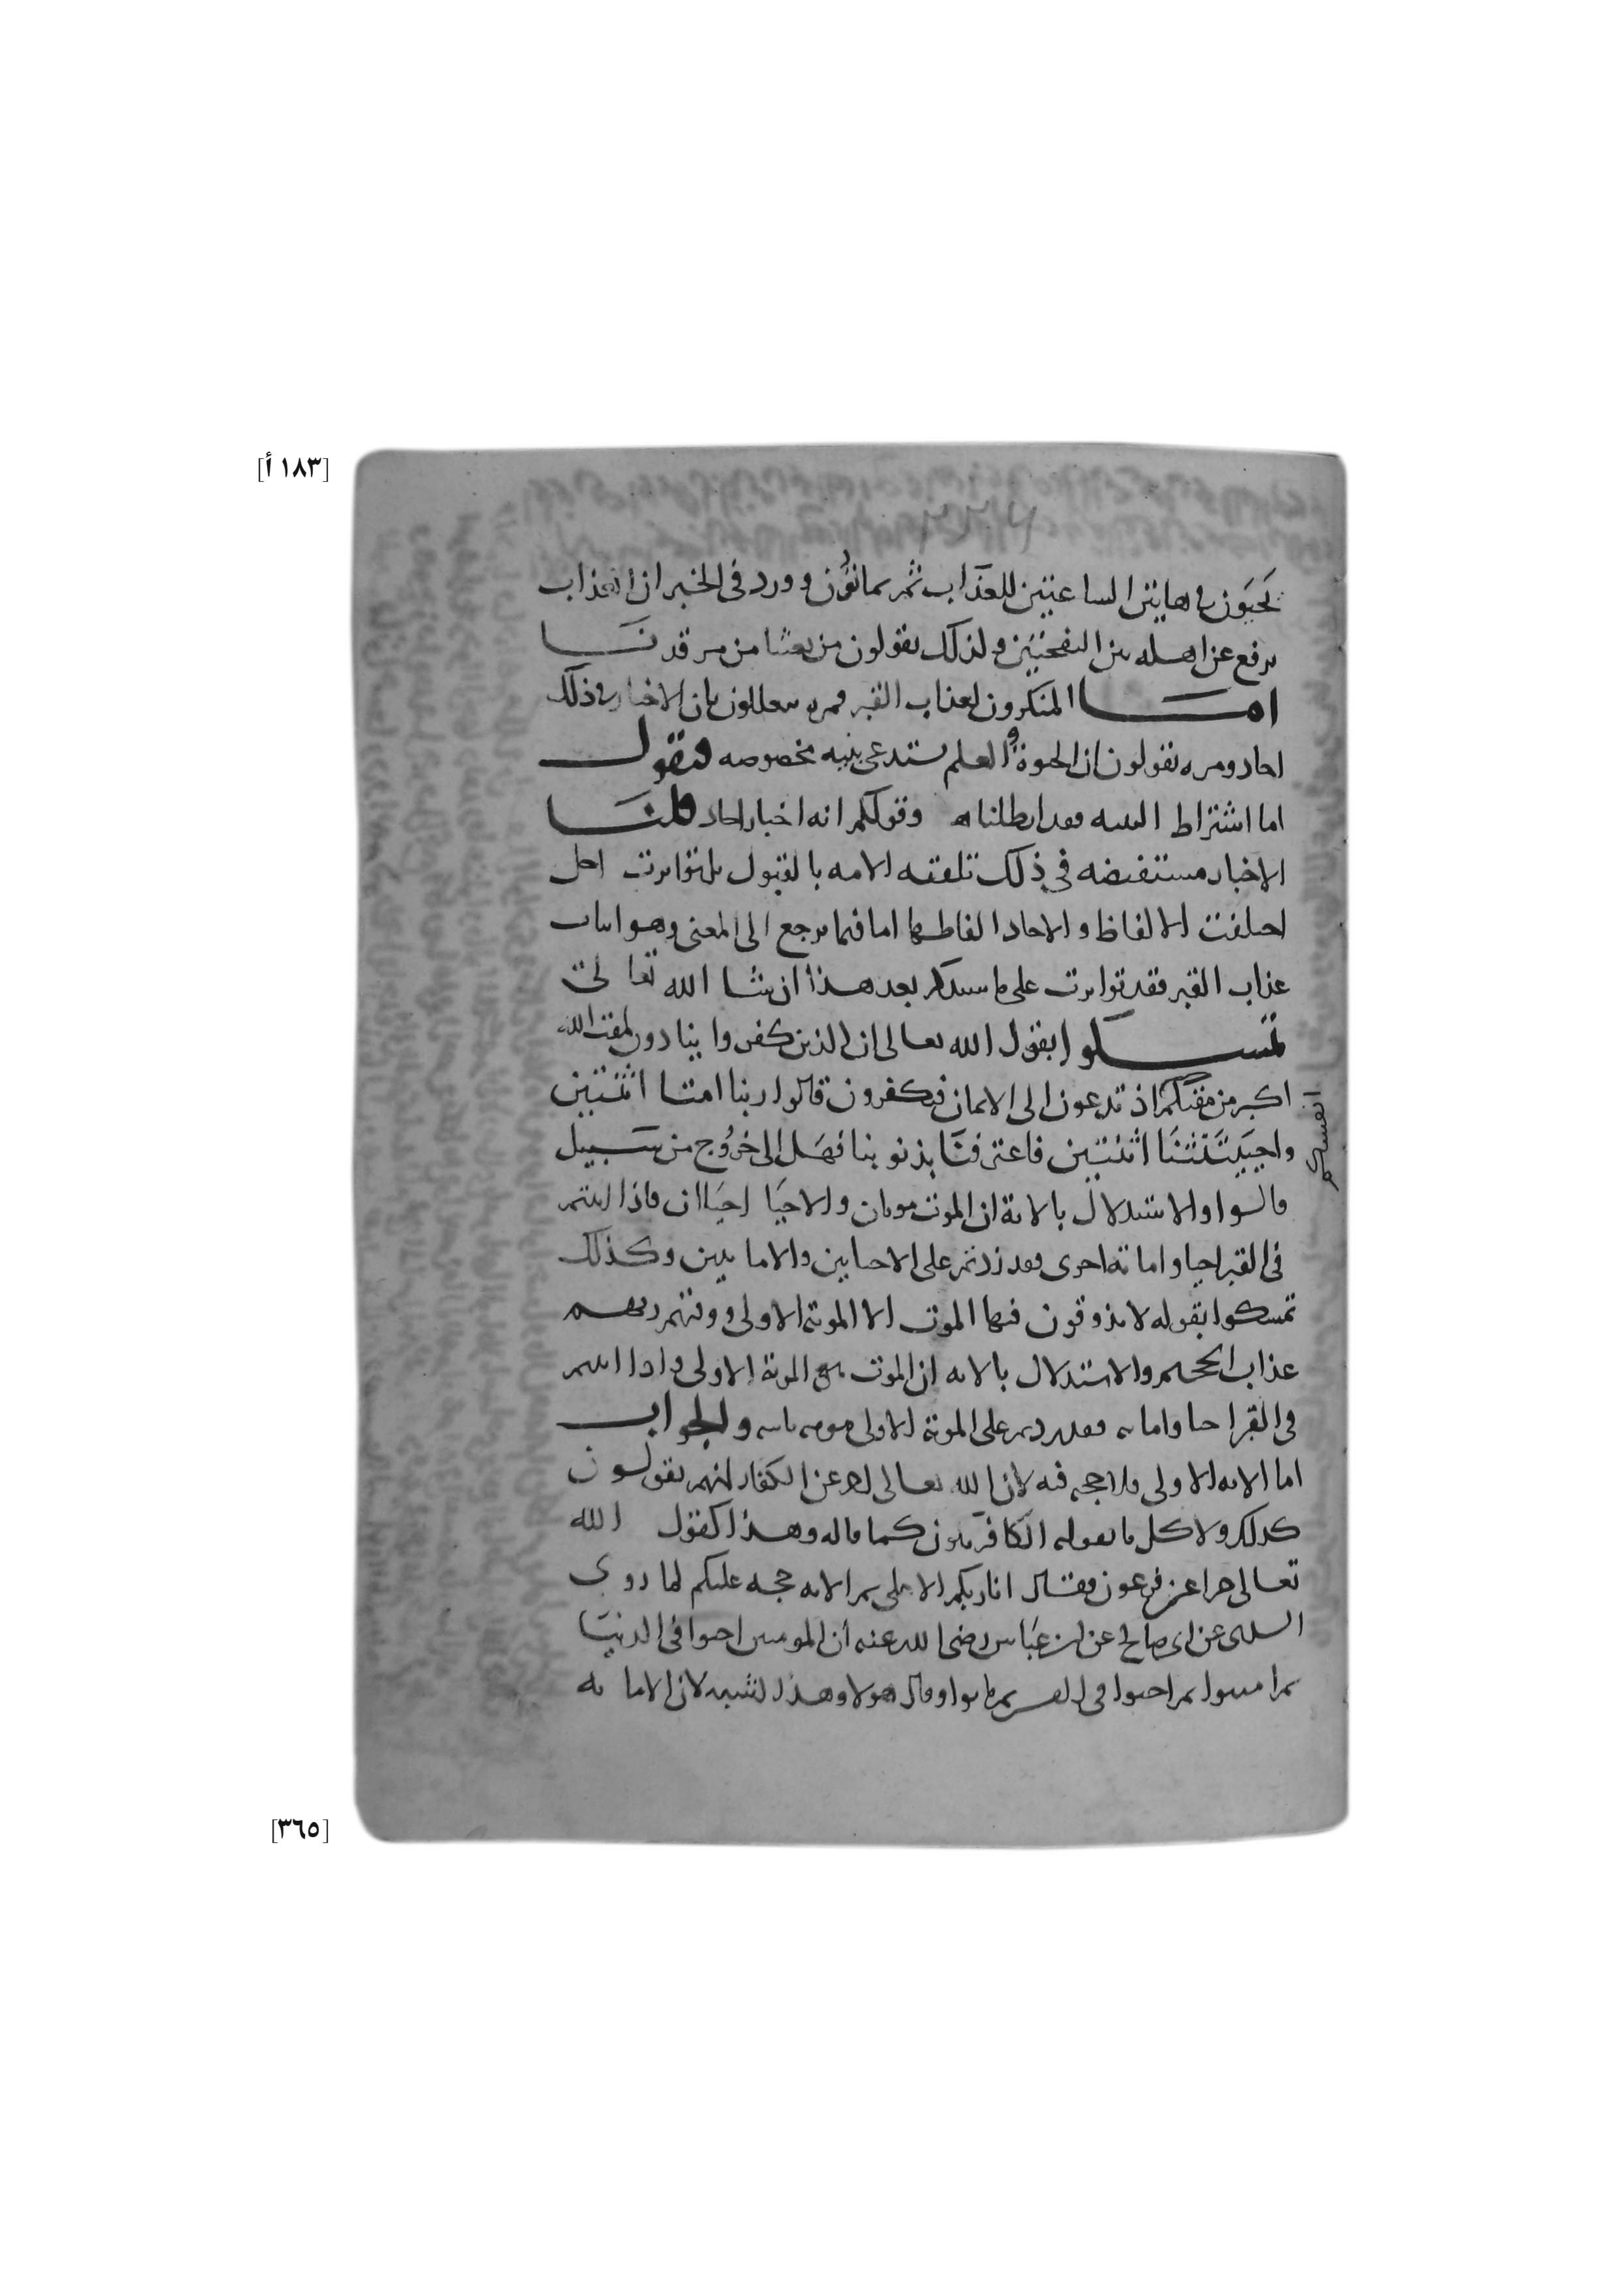 [١٨٣ أ]
يحيون في هاتين الساعتين للعذاب ثم يماتون وورد في الخبر ان العذاب
يرفع عن اهله بين النفختين ولذلك يقولون من بعثنا من مرقدنا
اما المنكرون لعذاب القبر فمره يتعللون بان الاخبار في ذلك
احاد ومره يقولون ان الحيوة والعلم يستدعي بنيه مخصوصه فنقول
اما اشتراط البنيه فقد ابطلناه وقولكم انه اخبار احاد قلنا
الاخبار مستفيضه في ذلك تلقته الامه بالقبول بل تواترت اجل
اختلفت الالفاظ والاحاد الفاظها اما فيما يرجع الى المعنى وهو اثبات
عذاب القبر فقد تواترت على ما سنذكر بعد هذا ان شا الله تعالى
تمسكوا بقول الله تعالى ان الذين كفروا ينادون لمقت الله
اكبر من مقتكم اذ تدعون الى الايمان فتكفرون قالوا ربنا امتنا اثنتين
انفسكم
واحييتنا اثنتين فاعترفنا بذنوبنا فهل الى خروج من سبيل
قالوا والاستدلال بالاية ان الموت موتان والاحيا احياان فاذا اثبتم
في القبر احيا واماتة اخرى فقد زدتم على الاحيايين والاماتتين وكذلك
تمسكوا بقوله لا يذوقون فيها الموت الا الموتة الاولى ووقيهم ربهم
عذاب الجحيم والاستدلال بالايه ان الموت هي الموتة الاولى واذا اثبتم
في القبر احيا واماته فقد زدتم على الموتة الاولى موته ثانيه والجواب
اما الايه الاولى فلا حجه فيه لان الله تعالى اخبر عن الكفار انهم يقولون
كذلك ولا كل ما يقوله الكافر يكون كما قاله وهذا كقول الله
تعالى خبرا عن فرعون فقال انا ربكم الاعلى ثم الايه حجه عليكم لما روى
عن ابي صالح عن ابن عباس رضي الله عنه ان المومنين احيوا في الدنيا
ثم اميتوا ثم احيوا في القبر ثم ماتوا وقال هولا وهذا اشبه لان الاماته
[٣٦٥]